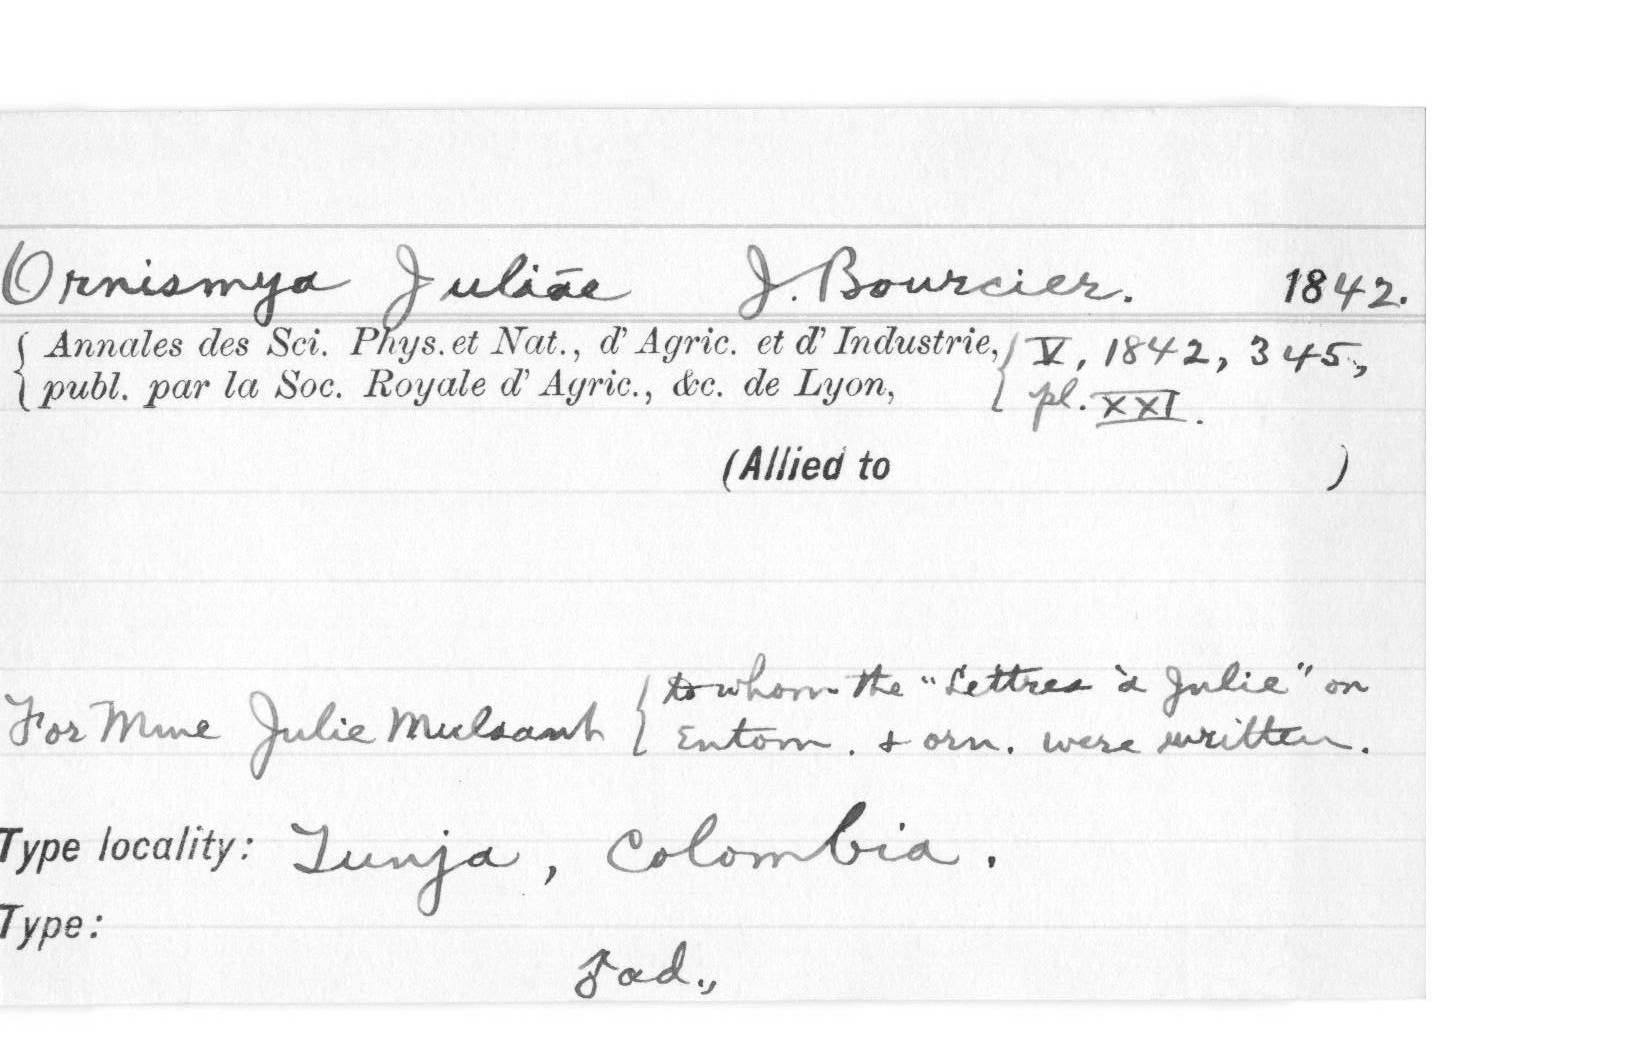 Ornismya Juliāe J. Bourcier. 1842.
{ Annales des Sci. Phys. et Nat., d' Agric. et d' Industrie, { V, 1842, 345,
{ publ. par la Soc. Royale d' Agric., &c. de Lyon, { pl. XXI.
(Allied to )
to whom the "Lettres à Julie" on
For Mme Julie Mulsant { Entom. & orn. were written.
Type locality: Tunja, Colombia.
Type:
♂ ad.,